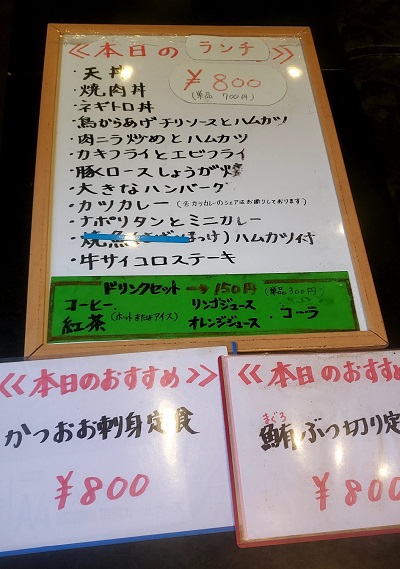 ≪本日のランチ≫
・天丼
¥800
(単品 700円)
・焼肉丼
・ネギトロ丼
・鳥からあげチリソースとハムカツ
・肉ニラ炒めとハムカツ
・カキフライとエビフライ
・豚ロースしょうが焼
・大きなハンバーグ
・カツカレー(※カツカレーのシェアはお断りしております)
・ナポリタンとミニカレー
ハムカツ付
・牛サイコロステーキ
ドリンクセット→150円(単品300円)
コーヒー リンゴジュース
紅茶(ホットまたはアイス) オレンジジュース ・コーラ
≪本日のおすすめ≫
かつおお刺身定食
¥800
≪本日のおすすめ
まぐろ
鮪ぶつ切り定
¥800